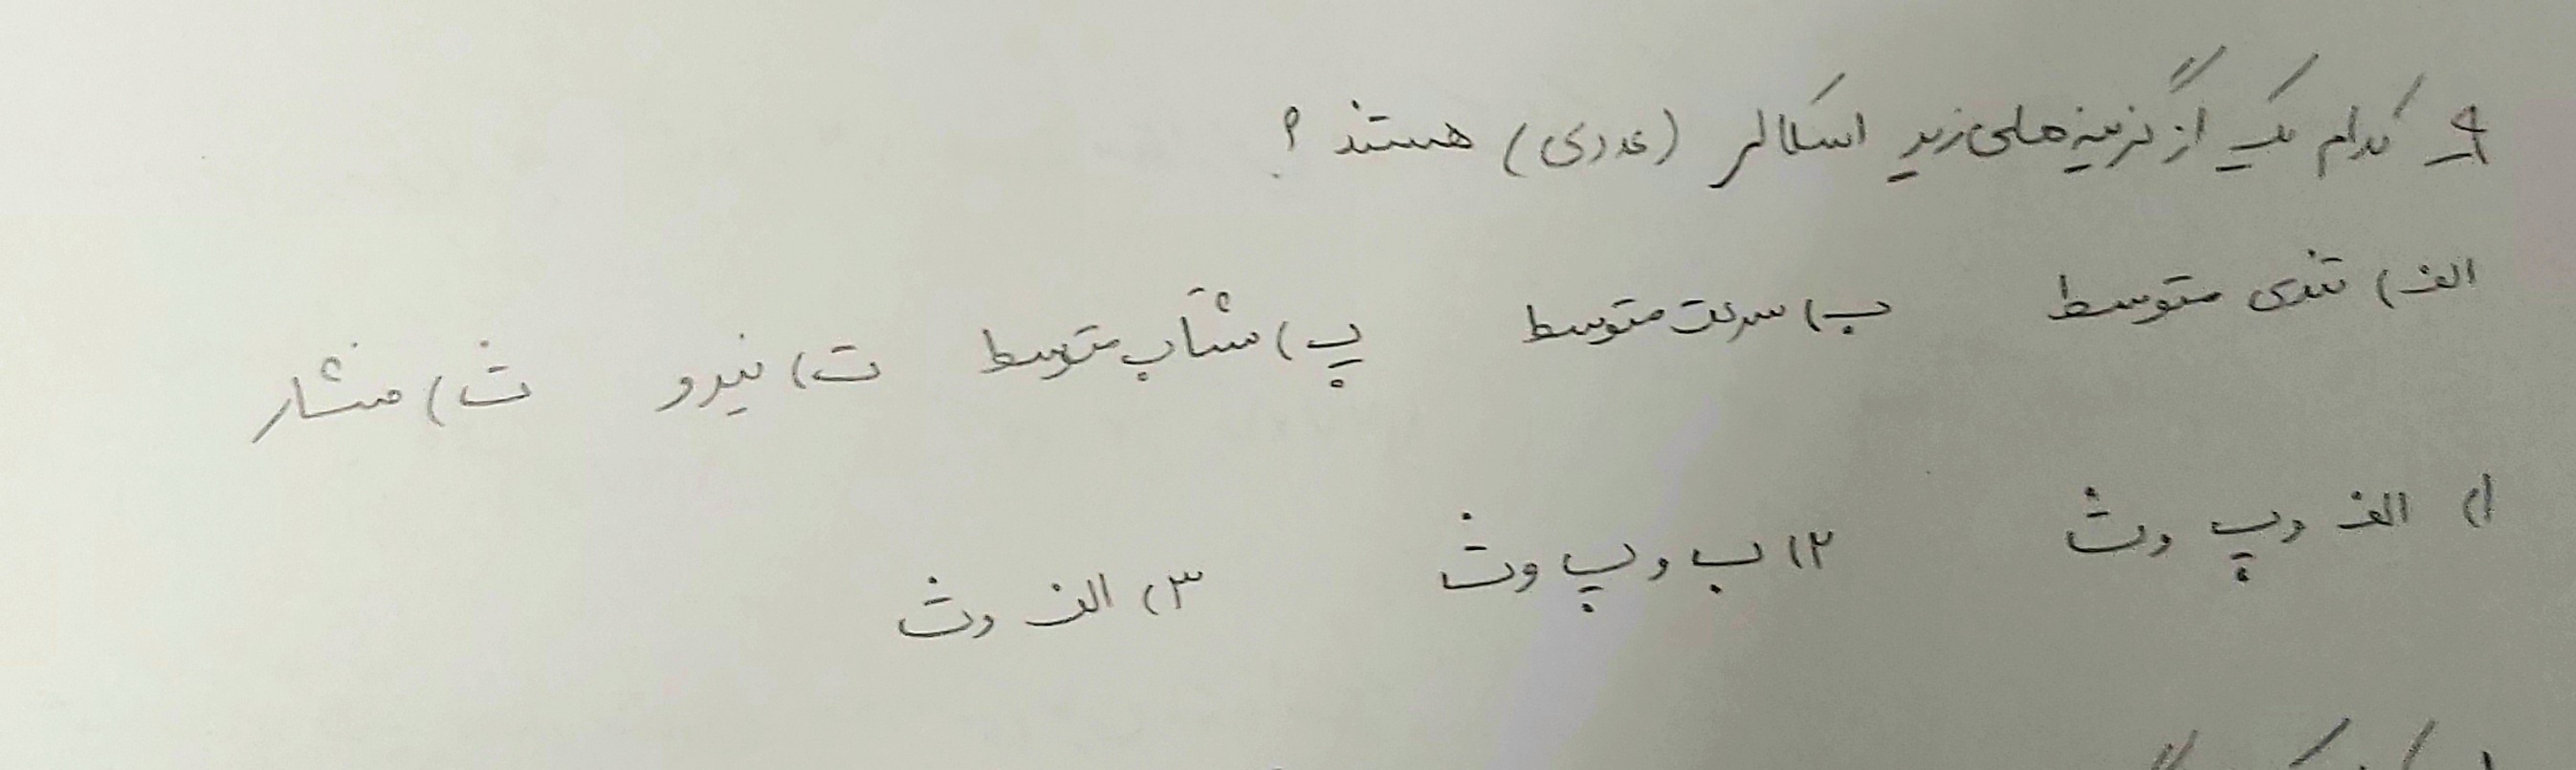 ۹_ کدام یک از گزینه های زیر اسکالر (عددی) هستند ؟
الف) تندی متوسط ب) سرعت متوسط پ) شتاب متوسط ت) نیرو ث) فشار
۱) الف و پ و ث ۲) ب و پ و ث ۳) الف و ث